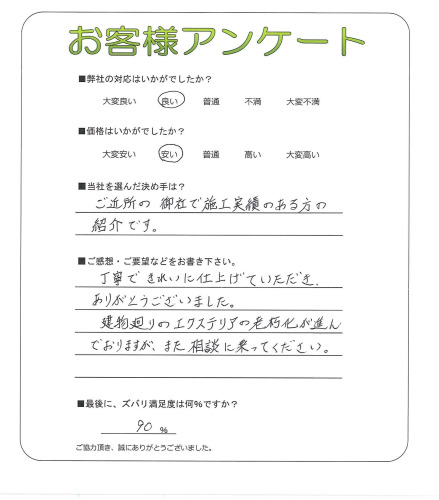 お客様アンケート
■弊社の対応はいかがでしたか？
大変良い 良い 普通 不満 大変不満
■価格はいかがでしたか？
大変安い 安い 普通 高い 大変高い
■当社を選んだ決め手は？
ご近所の 御社で施工実績のある方の
紹介です。
■ご感想・ご要望などをお書き下さい。
丁寧できれいに仕上げていただき、
ありがとうございました。
建物廻りのエクステリアの老朽化が進ん
でおりますが、また相談に乗ってください。
■最後に、ズバリ満足度は何％ですか？
90 %
ご協力頂き、誠にありがとうございました。